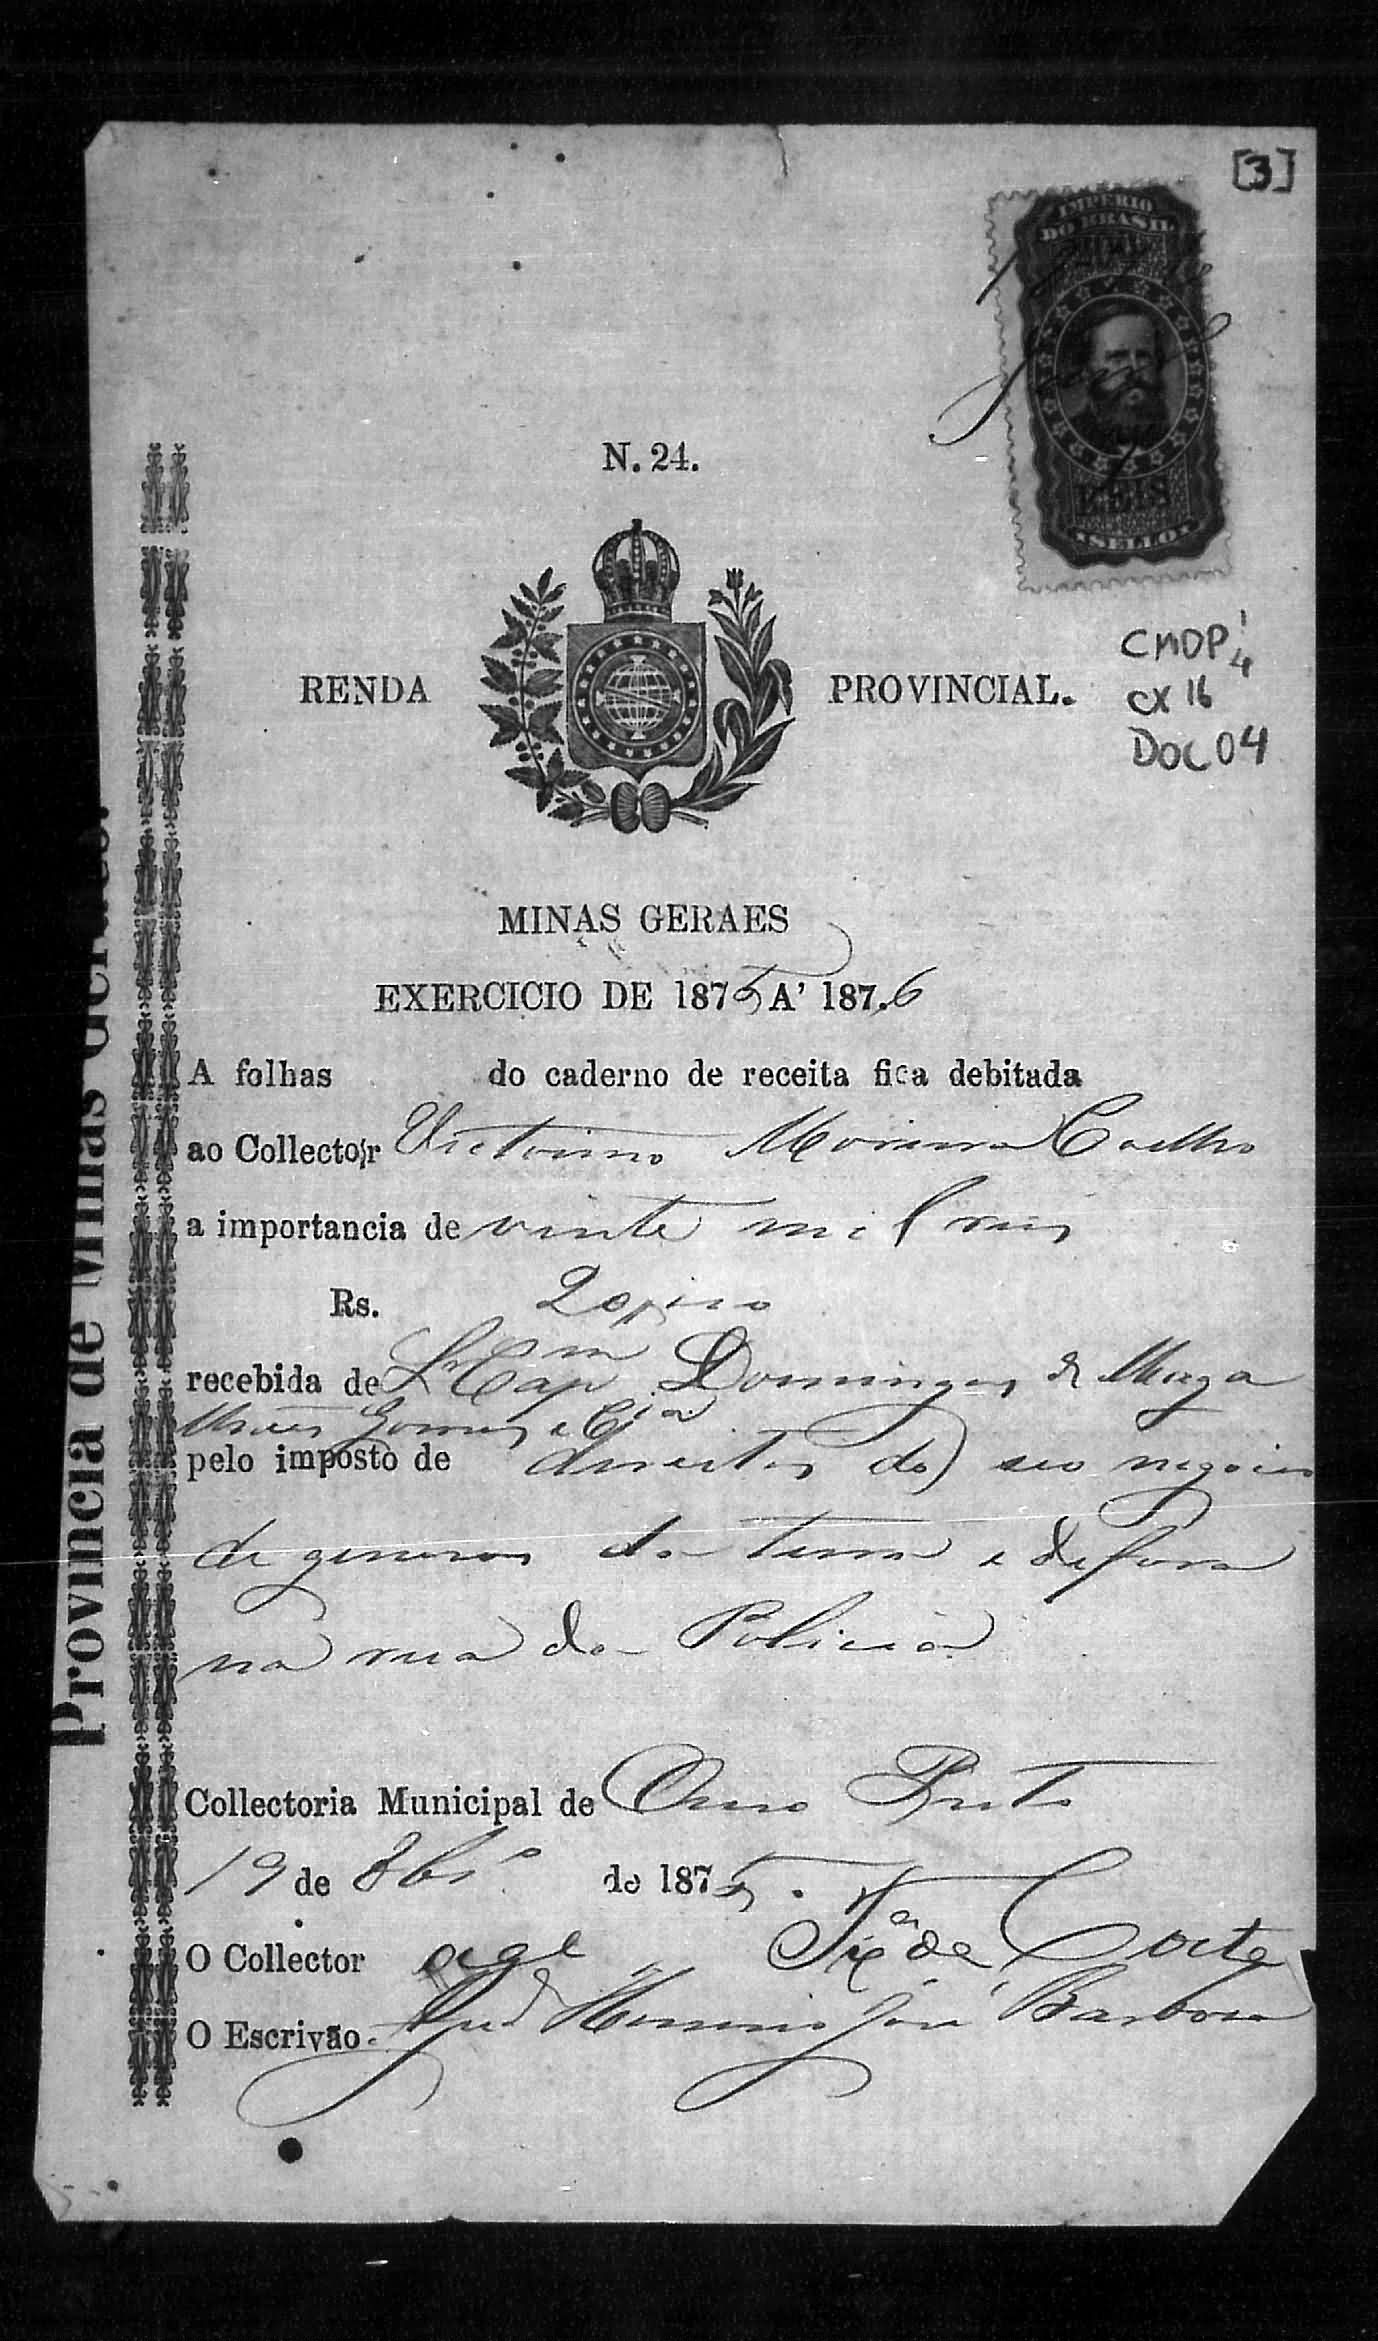 [3]
IMPERIO
DO BRASIL
REIS
SELLO
N. 24.
CMOP
4
CX 16
DOC 04
RENDA PROVINCIAL.
MINAS GERAES
EXERCICIO DE 1875 A' 1876
A folhas do caderno de receita fica debitada
ao Collector Victorino Moreira Coelho
a importancia de vinte mil reis
Rs. 20
recebida de Sr Capm Domingos de Maga
lhães Gomes e Cia
pelo imposto de direitos do seo negocio
de generos da terra e de fora
na rua da Policia
Collectoria Municipal de Ouro Preto
19 de 8bro de 1875.
O Collector
O Escrivão José Barbosa
Provincia de Minas Geraes.